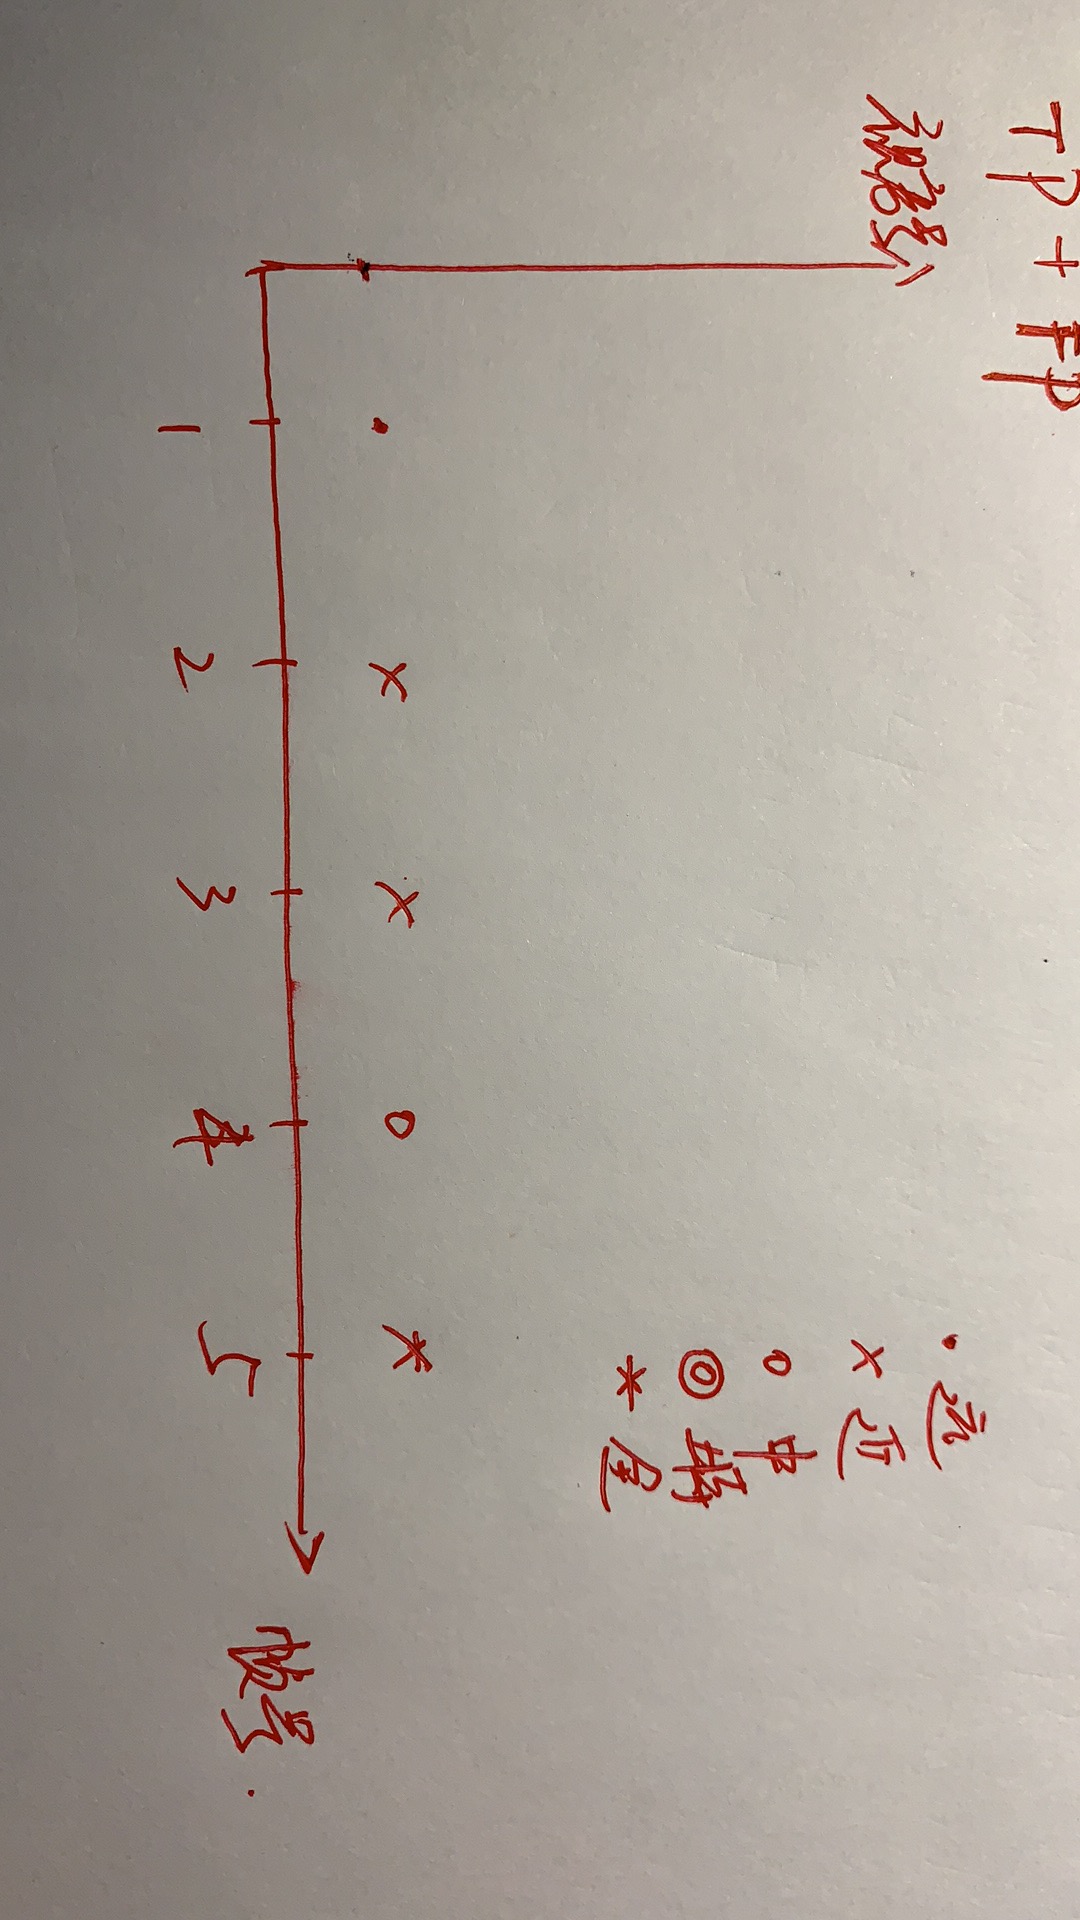 TP + FP
视音号
• 远
× 近
○ 中
◎ 特
* 全
1 2 3 4 5
帧号.